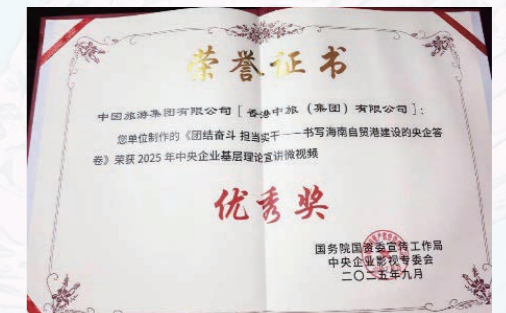 荣誉证书
中国旅游集团有限公司[香港中旅（集团）有限公司]：
您单位制作的《团结奋斗 担当实干——书写海南自贸港建设的央企答
卷》荣获 2025 年中央企业基层理论宣讲微视频
优秀奖
国务院国资委宣传工作局
中央企业影视专委会
二〇二五年九月